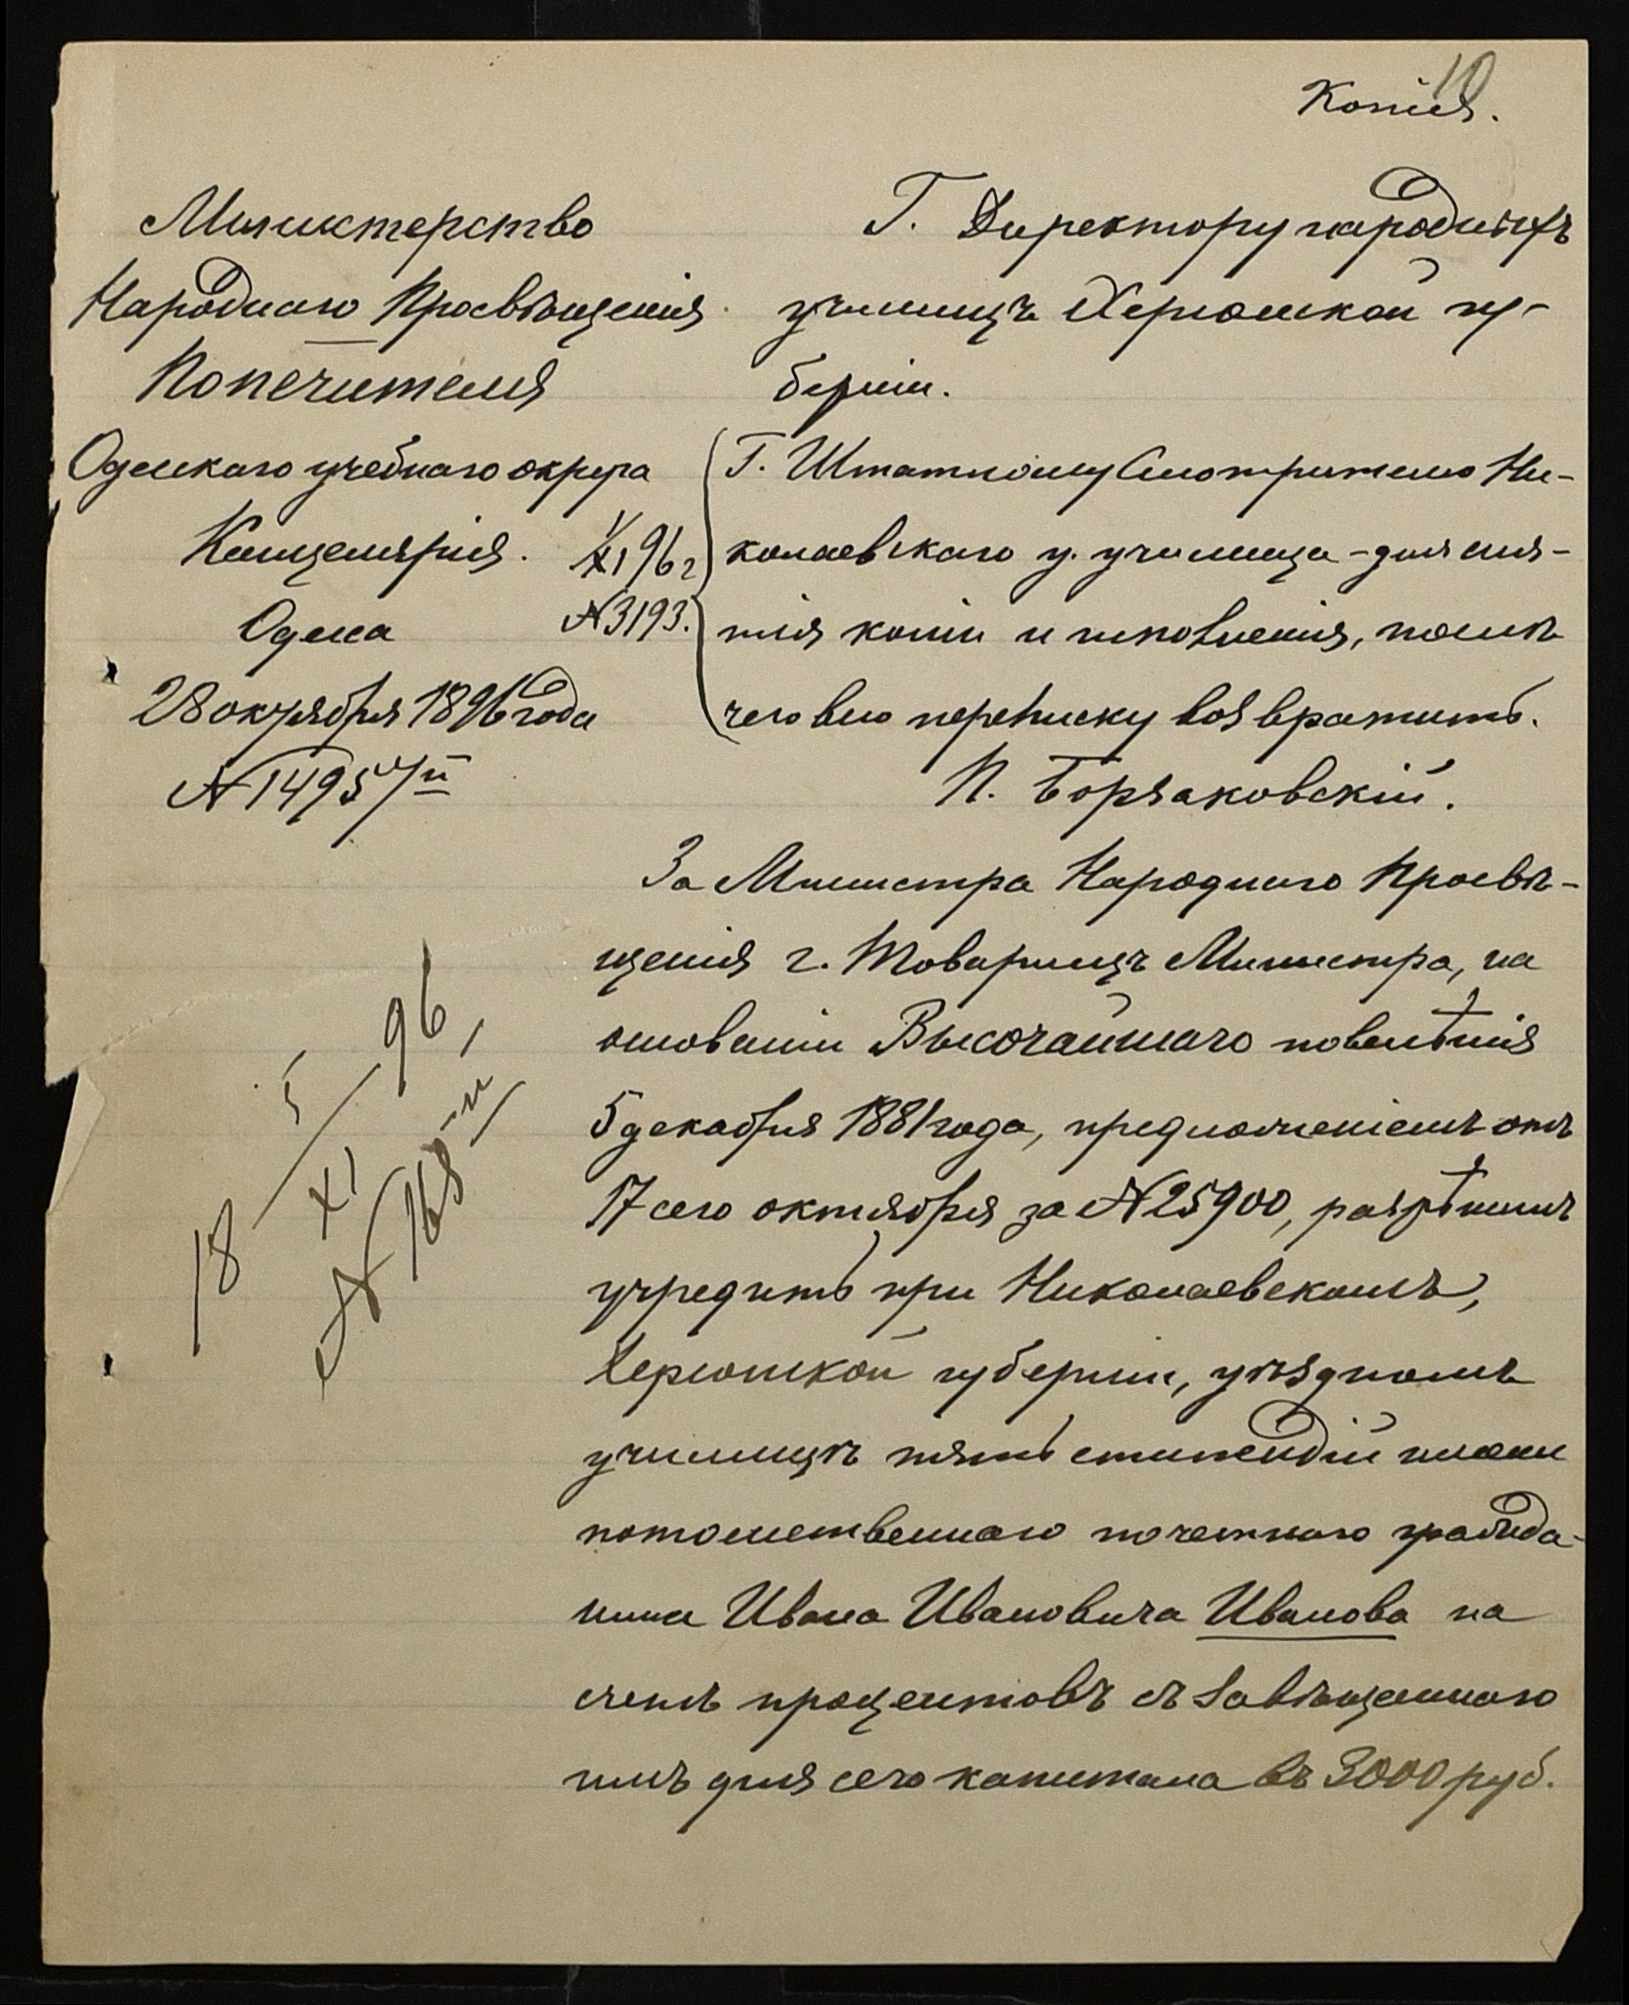 10
Копія.
Министерство
Народнаго Просвѣщенія.
Попечителя
Одесскаго учебнаго округа
Канцелярія.
Одесса
28 октября 1896 года
№ 14957/п
Г. Директору народныхъ
училищъ Херсонской гу-
берніи.
1/XI 96 г
№ 3193.
Г. Штатному Смотрителю Ни-
колаевскаго у. училища - для сня-
тія копіи и исполненія, послѣ
чего всю переписку возвратить.
П. Борзаковскій.
За Министра Народнаго Просвѣ-
щенія г. Товарищъ Министра, на
основаніи Высочайшаго повелѣнія
5 декабря 1881 года, предложеніемъ отъ
17 сего октября за № 25900, разрѣшилъ
учредить при Николаевскомъ,
Херсонской губерніи, уѣздномъ
училищѣ пять стипендій имени
потомственнаго почетнаго гражда-
нина Ивана Ивановича Иванова на
счетъ процентовъ съ завѣщаннаго
имъ для сего капитала въ 3000 руб.
18 5/XI 96
№ 168